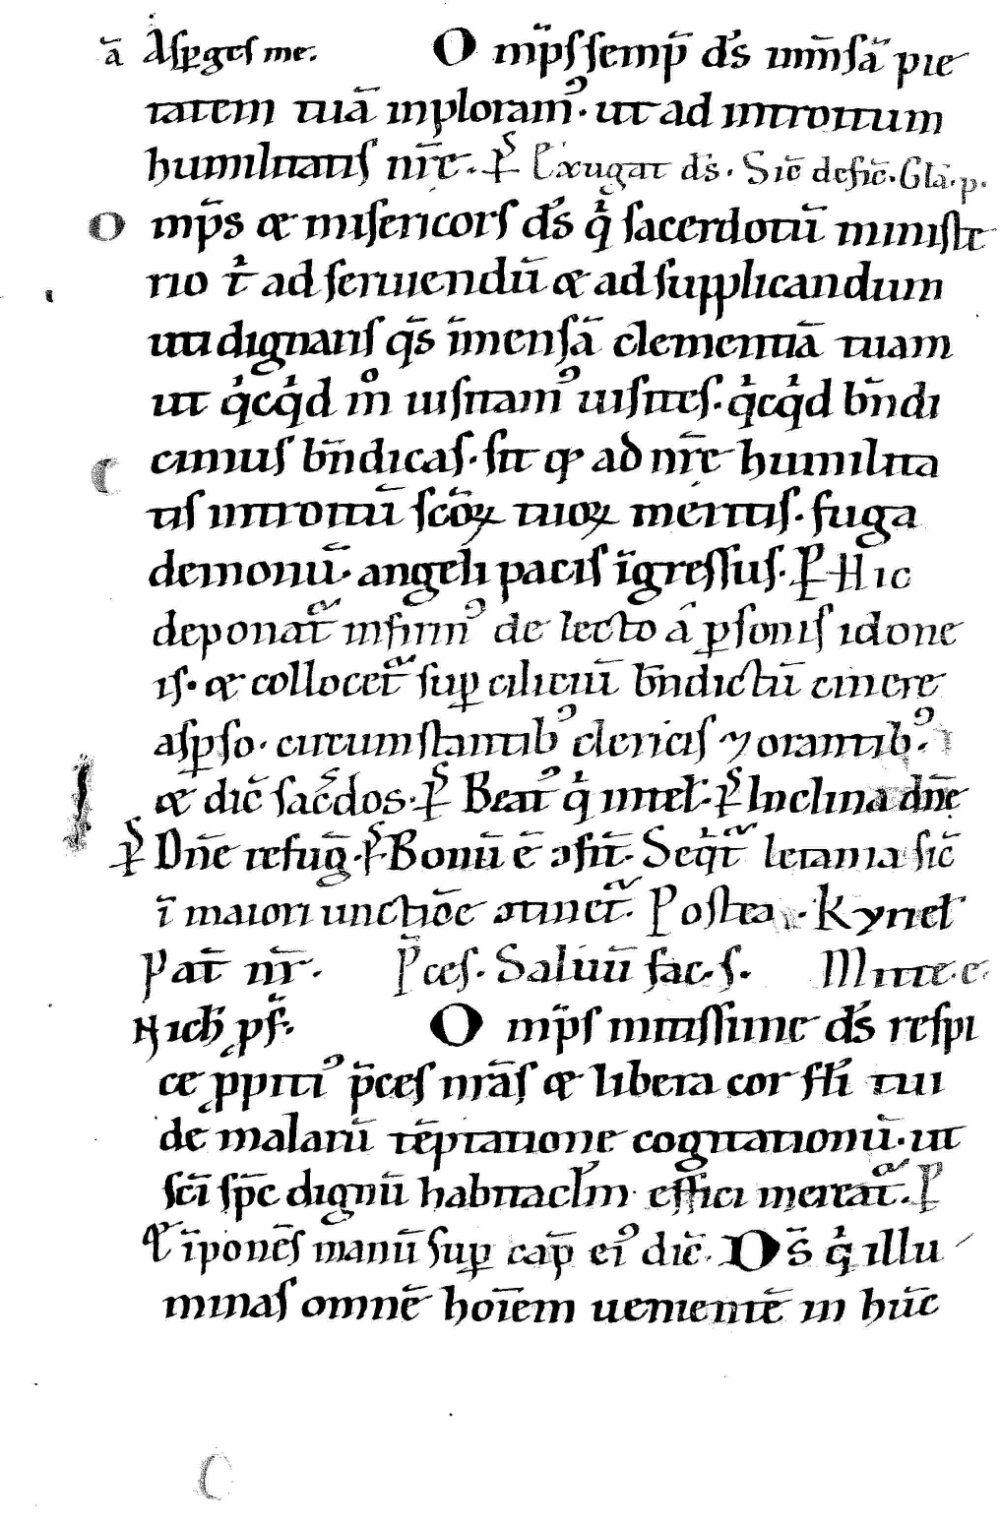 ā Asꝑges me. O mp̄s semp̄ d̄s inm̄sā pie
tatem tuā inploramꝰ. ut ad introitum
humilitatis nr̄e. Exurgat d̄s. Sic̄ defic̄. Gl̄a. p.
O mp̄s & misericors d̄s qͥ sacerdotū ministe
rio tͥ ad seruiendū & ad supplicandum
uti dignaris q̄s īmensā clementiā tuam
ut qͥcqͥd mͦ uisitamꝰ uisites. qͥcqͥd bn̄di
cimus bn̄dicas. sit qꝫ ad nr̄e humilita
tis introitū sc̄oꝝ tuoꝝ meritis. fuga
demonū. angeli pacis īgressus. Hic
deponat᷑ infirmꝰ de lecto ā ꝑsonis idone
is. & collocet᷑ suꝑ ciliciū bn̄dictū cinere
asꝑso. circumstantibꝰ clericis ⁊ orantibꝰ.
& dic̄ sac̄dos. ꝑ̄s Beatꝰ qͥ intel̄. ꝑ̄s Inclina dn̄e
ꝑ̄s Dn̄e refuḡ. ꝑ̄s Bonū ē ꝯfit̄. Seqͥt᷑ letania sic̄
ī maiori unctiōe ꝯtinet᷑. Postea. Kyriel̄
Pat̄ nr̄. P̄ces. Saluū fac. s. Mitte. e.
Nich̄ ꝓf̄. O mp̄s mitissime d̄s respi
ce ꝓpitiꝰ p̄ces nr̄as & libera cor fl̄i tui
de malarū tēptatione cogitationū. ut
sc̄i sp̄c dignū habitaclͫm effici mereat᷑. P
īponēs manū suꝑ cap̄ eiꝰ dic̄. D s̄ qͥ illu
minas omnē hoīem uenientē in hūc